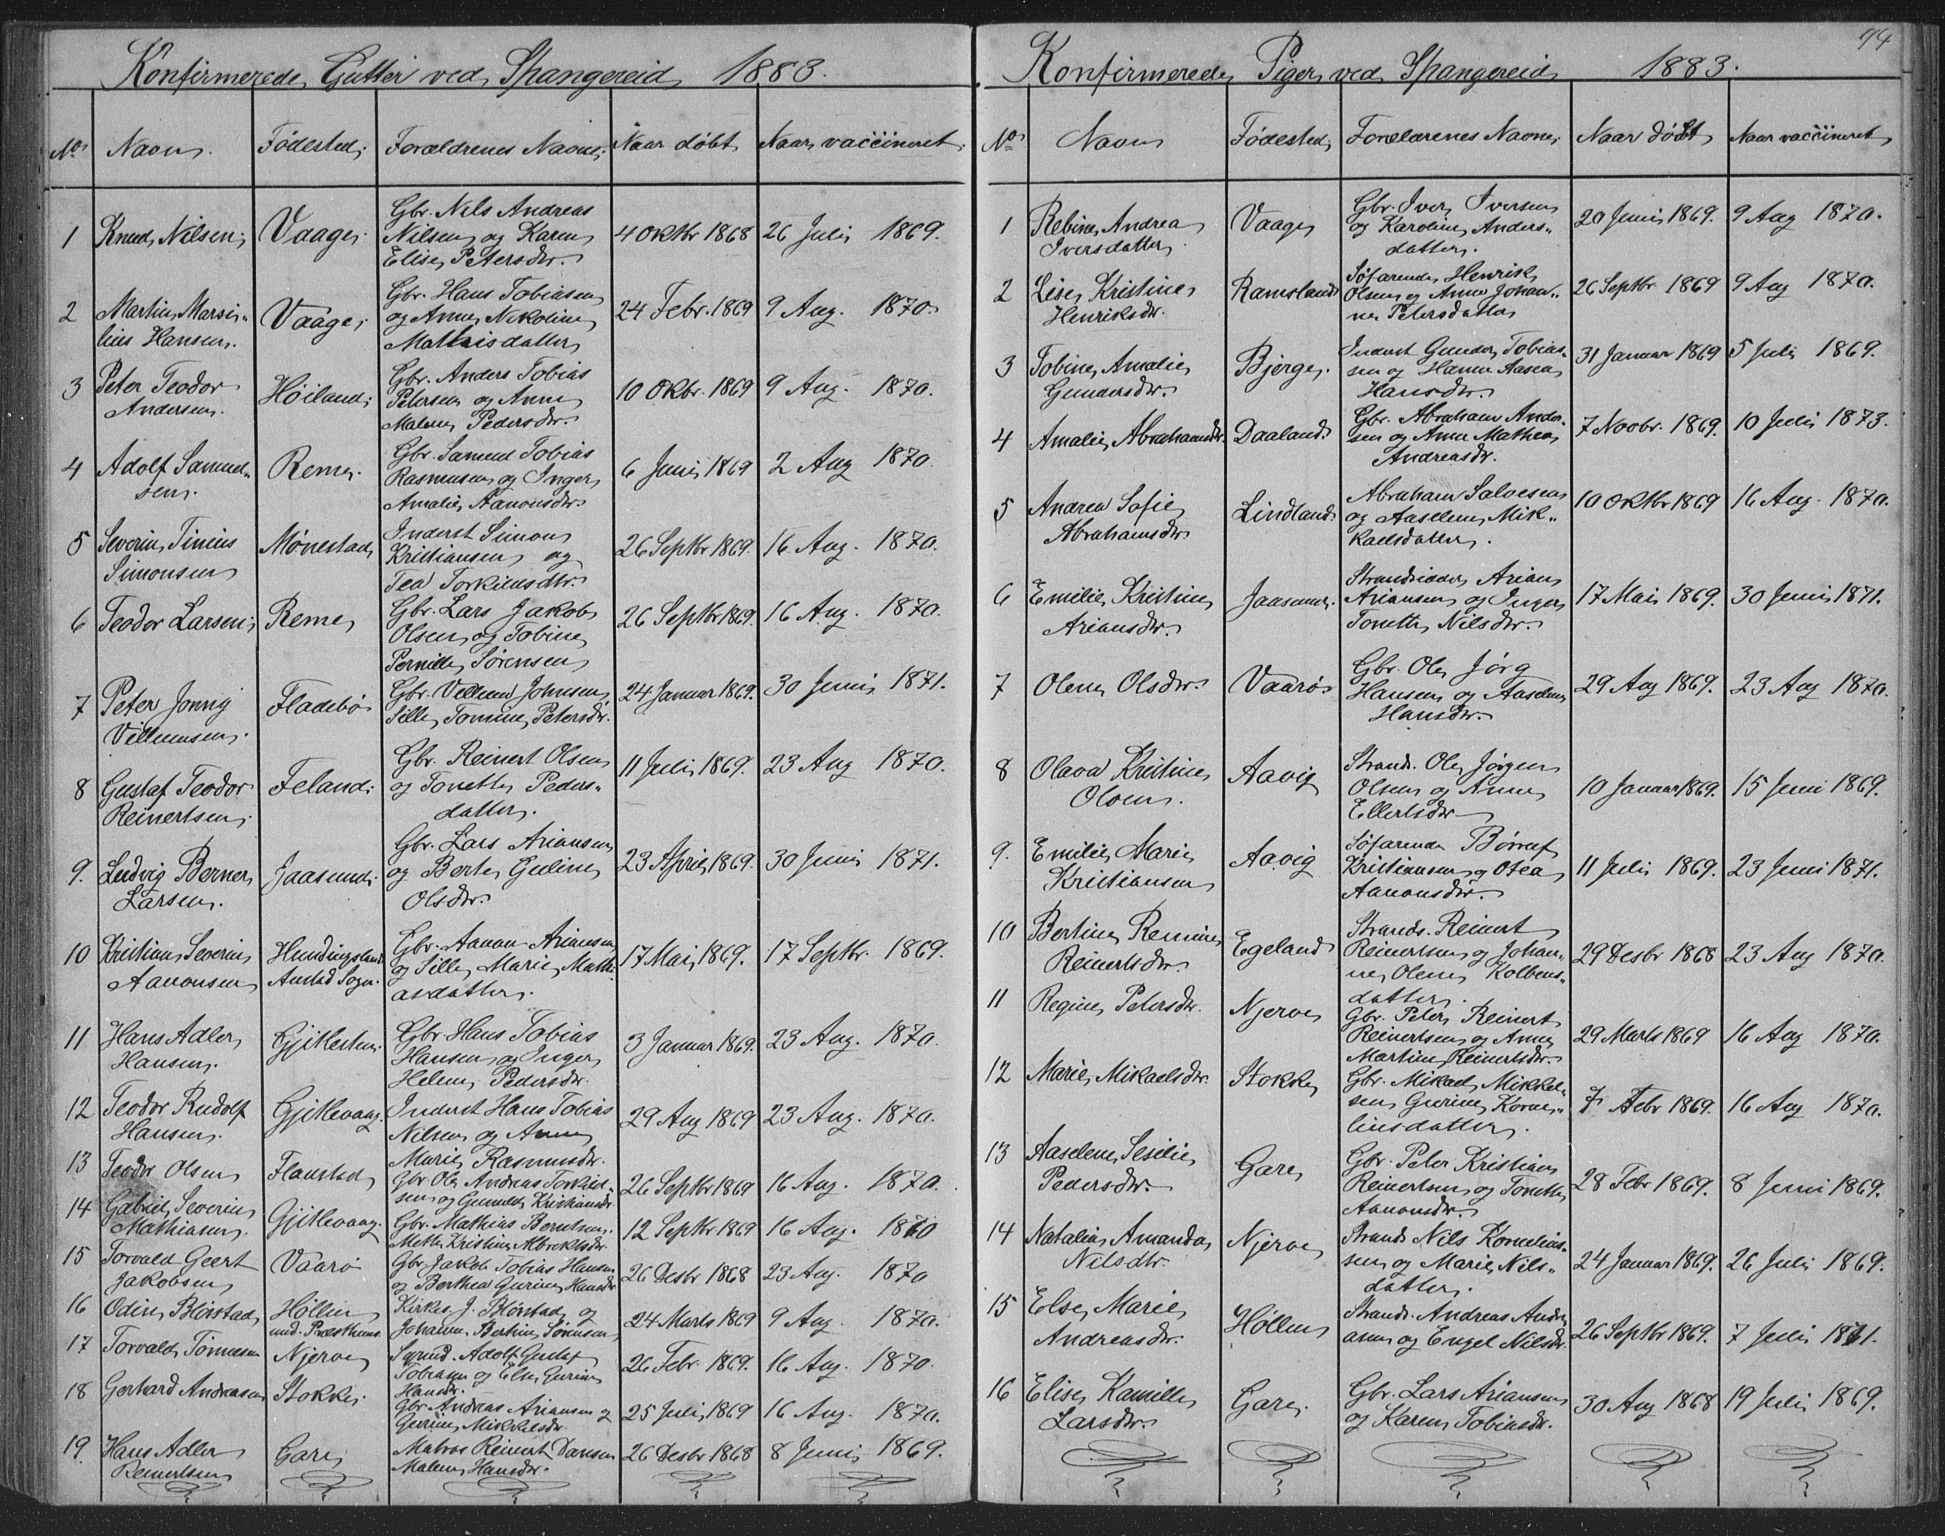 Konfirmerede Gutter ved Spangereid 1883.
No Navn. Fødested. Forældrenes Navne. Naar døbt Naar vacciineret.
1 Knud Nilsen. Vaage. Gbr. Nils Andreas Nilsen og Karen Elise Petersdtr. 4 Oktbr 1868 26 Juli 1869.
2 Martin Marsi-lius Hansen. Vaage. Gbr. Hans Tobiasen og Anne Nikoline Mathisdatter 24 Febr. 1869 9 Aug. 1870.
3 Peter Teodor Andersen. Høiland. Gbr. Anders Tobias Petersen og Anne Malene Pedersdtr. 10 Okbr. 1869 9 Aug. 1870.
4 Adolf Samuel-sen. Reme. Gbr. Samuel Tobias Rasmusen og Inger Amalie Aanonsdtr. 6 Juni 1869 2 Aug 1870.
5 Severin Tinius Simonsen Mønestad Inderst Simon Kristiansen og Tea Torkildsdtr. 26 Septbr 1869. 16 Aug. 1870.
6 Teodor Larsen. Reme Gbr. Lars Jakob Olsen og Tobine Pernille Sørensen 26 Septbr 1869. 16 Aug. 1870.
7 Peter Jonnig Villumsen. Fladebø Gbr. Villum Johnsen Sille Tomine Petersdtr. 24 Januar 1869. 30 Juni 1871.
8 Gustaf Teodor Reinertsen. Feland. Gbr. Reinert Olsen og Tonette Peders-datter. 11 Juli 1869. 23 Aug 1870.
9. Ludvig Berner Larsen. Jaasund. Gbr. Lars Ariansen og Berte Guline Olsdtr. 23 April 1869. 30 Juni 1871.
10 Kristian Severin Aanonsen Hundingsland Austad Sogn. Gbr. Aanon Ariansen og Sille Marie Mathi-asdatter. 17 Mai 1869. 17 Septbr. 1869.
11 Hans Adler Hansen. Gjitlestrm. Gbr. Hans Tobias Hansen og Inger Helene Pedersdtr. 3 Januar 1869. 23 Aug. 1870.
12 Teodor Rudolf Hansen. Gjitlevaag. Inderst Hans Tobias Nilsen og Anne Marie Rasmusdtr. 29 Aug 1869 23 Aug. 1870.
13 Teodor Olsen Flaastad Gbr Ole Andreas Torkild-sen og Gunnild Kristiansdtr 26 Septbr 1869 16 Aug. 1870.
14 Gabriel Severin Mathiasen. Gjitlevaag. Gbr. Mathias Berntsen. Mette Kristine Albrektsdtr 12 Septbr 1869 16 Aug. 1870
15 Torvald Geert Jakobsen Vaarø Gbr Jakob Tobias Hansen og Berthea Gurine Hansdtr 26 Desbr 1868 23 Aug. 1870
16 Odin Blörstad Høllen Kirkes. J. Blörstad og Johanne Bertine Sørensen 24 Marts 1869 9 Aug. 1870.
17 Torvald Tönnesen Njerve Adolf Gustaf Tobiasen og Else Gurine Hansdtr. 26 Febr 1869. 16 Aug. 1870.
18 Gerhard Andreasen Stokke. Gbr Andreas Ariansen og Gurine Mikkelsdtr 25 Juli 1869 16 Aug. 1870.
19. Hans Adler Reinertsen Gare Matros Reinert Dansen Malene Hansdtr. 26 Desbr 1868 8 Juni 1869.
94
Konfirmerede Piger ved Spangereid 1883.
No Navn Fødested. Forældrenes Navne. Naar døbt Naar vacciineret
1 Rebine Andrea Iversdatter. Vaage Gbr. Iver Iversen og Karoline Anders-datter. 20 Juni 1869. 9 Aug 1870.
2 Lise Kristine Henriksdtr. Ramsland Søfarende Henrik Olsen og Anne Johan-ne Petersdatter 26 Septbr 1869 9 Aug 1870.
3 Tobine Amalie Gunnersdtr. Bjerge. Inderst Gunder Tobias-sen og Hanne Aasea Hansdtr. 31 Januar 1869 5 Juli 1869.
4 Amalie Abrahamsdtr. Daaland Gbr. Abraham Ander-sen og Anne Mathea Andreasdtr. 7 Novbr. 1869. 10 Juli 1873.
5 Andrea Sofie Abrahamsdtr Lindland Abraham Salvesen og Aaselene Mik-kaelsdatter. 10 Oktbr 1869 16 Aug. 1870.
6 Emilie Kristine Ariansdtr. Jaasund. Strandsidder Arian Ariansen og Inger Tonette Nilsdtr. 17 Mai 1869. 30 Juni 1871.
7 Olene Olsdtr. Vaarø Gbr. Ole Jörg Hansen og Aaselene Hansdtr. 29 Aug 1869. 23 Aug 1870.
8 Olava Kristine Olsen. Aavig Strands. Ole Jörgen Olsen og Anne Ellertsdtr 10 Januar 1869. 15 Juni 1869.
9. Emilie Marie Kristiansen Aavig Søfarende Børruf Kristiansen og Osea Aanonsdtr. 11 Juli 1869. 23 Juni 1871.
10 Bertine Remine Reinertsdtr. Egeland Strands. Reinert Reinertsen og Johan-ne Olene Kolbens-datter. 29 Desbr 1868 23 Aug 1870.
11 Regine Petersdtr. Njerve Gbr. Peter Reinert Reinertsen og Anne Martine Reinertsdtr. 29 Marts 1869 16 Aug 1870.
12 Marie Mikaelsdtr. Stokke Gbr. Mikael Mikkel-sen Gurine Korne-liusdatter. 7 Febr 1869. 16 Aug 1870.
13 Aaselene Sesilie Pedersdtr. Gare Gbr. Peter Kristian Reinertsen og Tonette Aanonsdtr. 28 Febr 1869. 8 Juni 1869.
14 Natalia Amanda Nilsdtr. Njerve Strands Nils Kornelius-sen og Marie Nils-datter. 24 Januar 1869. 26 Juli 1869.
15 Else Marie Andreasdtr. Høllen Strands. Andreas Andre-asen og Engel Nilsdtr. 26 Septbr 1869. 7 Juli 1871.
16 Elise Kamille Larsdtr. Gare. Gbr. Lars Ariansen og Karen Tobiasdtr. 30 Aug 1868 19 Juli 1869.